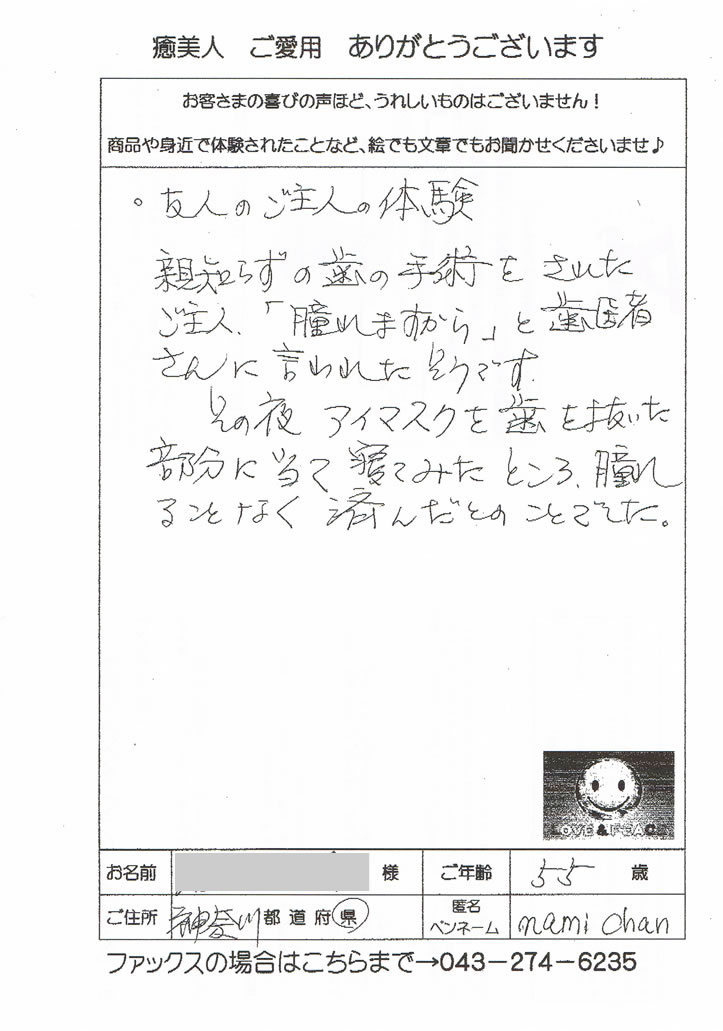 癒美人 ご愛用 ありがとうございます
お客さまの喜びの声ほど、うれしいものはございません！
商品や身近で体験されたことなど、絵でも文章でもお聞かせくださいませ♪
。友人のご主人の体験
親知らずの歯の手術をされた
ご主人、「腫れますから」と歯医者
さんに言われたそうです。
その夜 アイマスクを歯を抜いた
部分に当て寝てみたところ、腫れ
ることなく済んだとのことでした。
LOVE & PEACE
お名前 様 ご年齢 55 歳
ご住所 神奈川 都道府県 匿名ペンネーム nami chan
ファックスの場合はこちらまで→043－274－6235